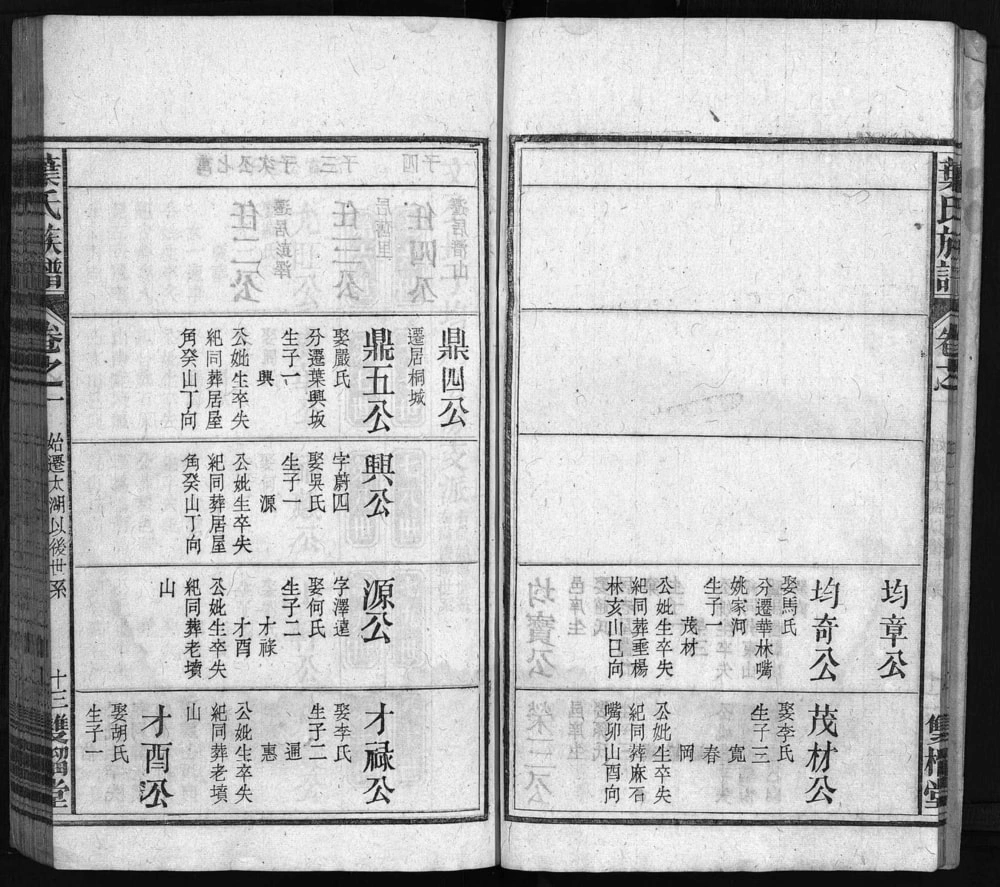 葉氏族譜
卷之一
均章公
均奇公
娶馬氏
分遷華林嘴
姚家河
生子一
茂材
公妣生卒失
紀同葬垂楊
林亥山巳向
茂材公
娶李氏
生子三
寬
春
岡
公妣生卒失
紀同葬麻石
嘴卯山酉向
鼎四公
遷居桐城
鼎五公
娶嚴氏
分遷葉興坂
生子一
興
公妣生卒失
紀同葬居屋
角癸山丁向
興公
字蔚四
娶吳氏
生子一
源
公妣生卒失
紀同葬居屋
角癸山丁向
源公
字澤遠
娶何氏
生子二
才祿
才酉
公妣生卒失
紀同葬老墳
山
才祿公
娶李氏
生子二
暹
惠
公妣生卒失
紀同葬老墳
山
才酉公
娶胡氏
生子一
葉氏族譜
卷之一
始遷太湖以後世系
十三
雙桐堂